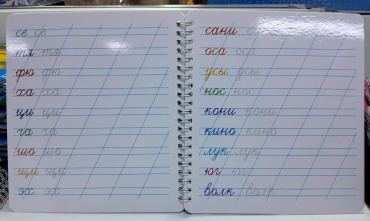 св св
тя тя
фю фю
ха ха
ци ци
ча ча
шо шо
щи щи
эх эх
сани сани
оса оса
усы усы
нос нос
кони кони
кино кино
лук лук
юг юг
волк волк